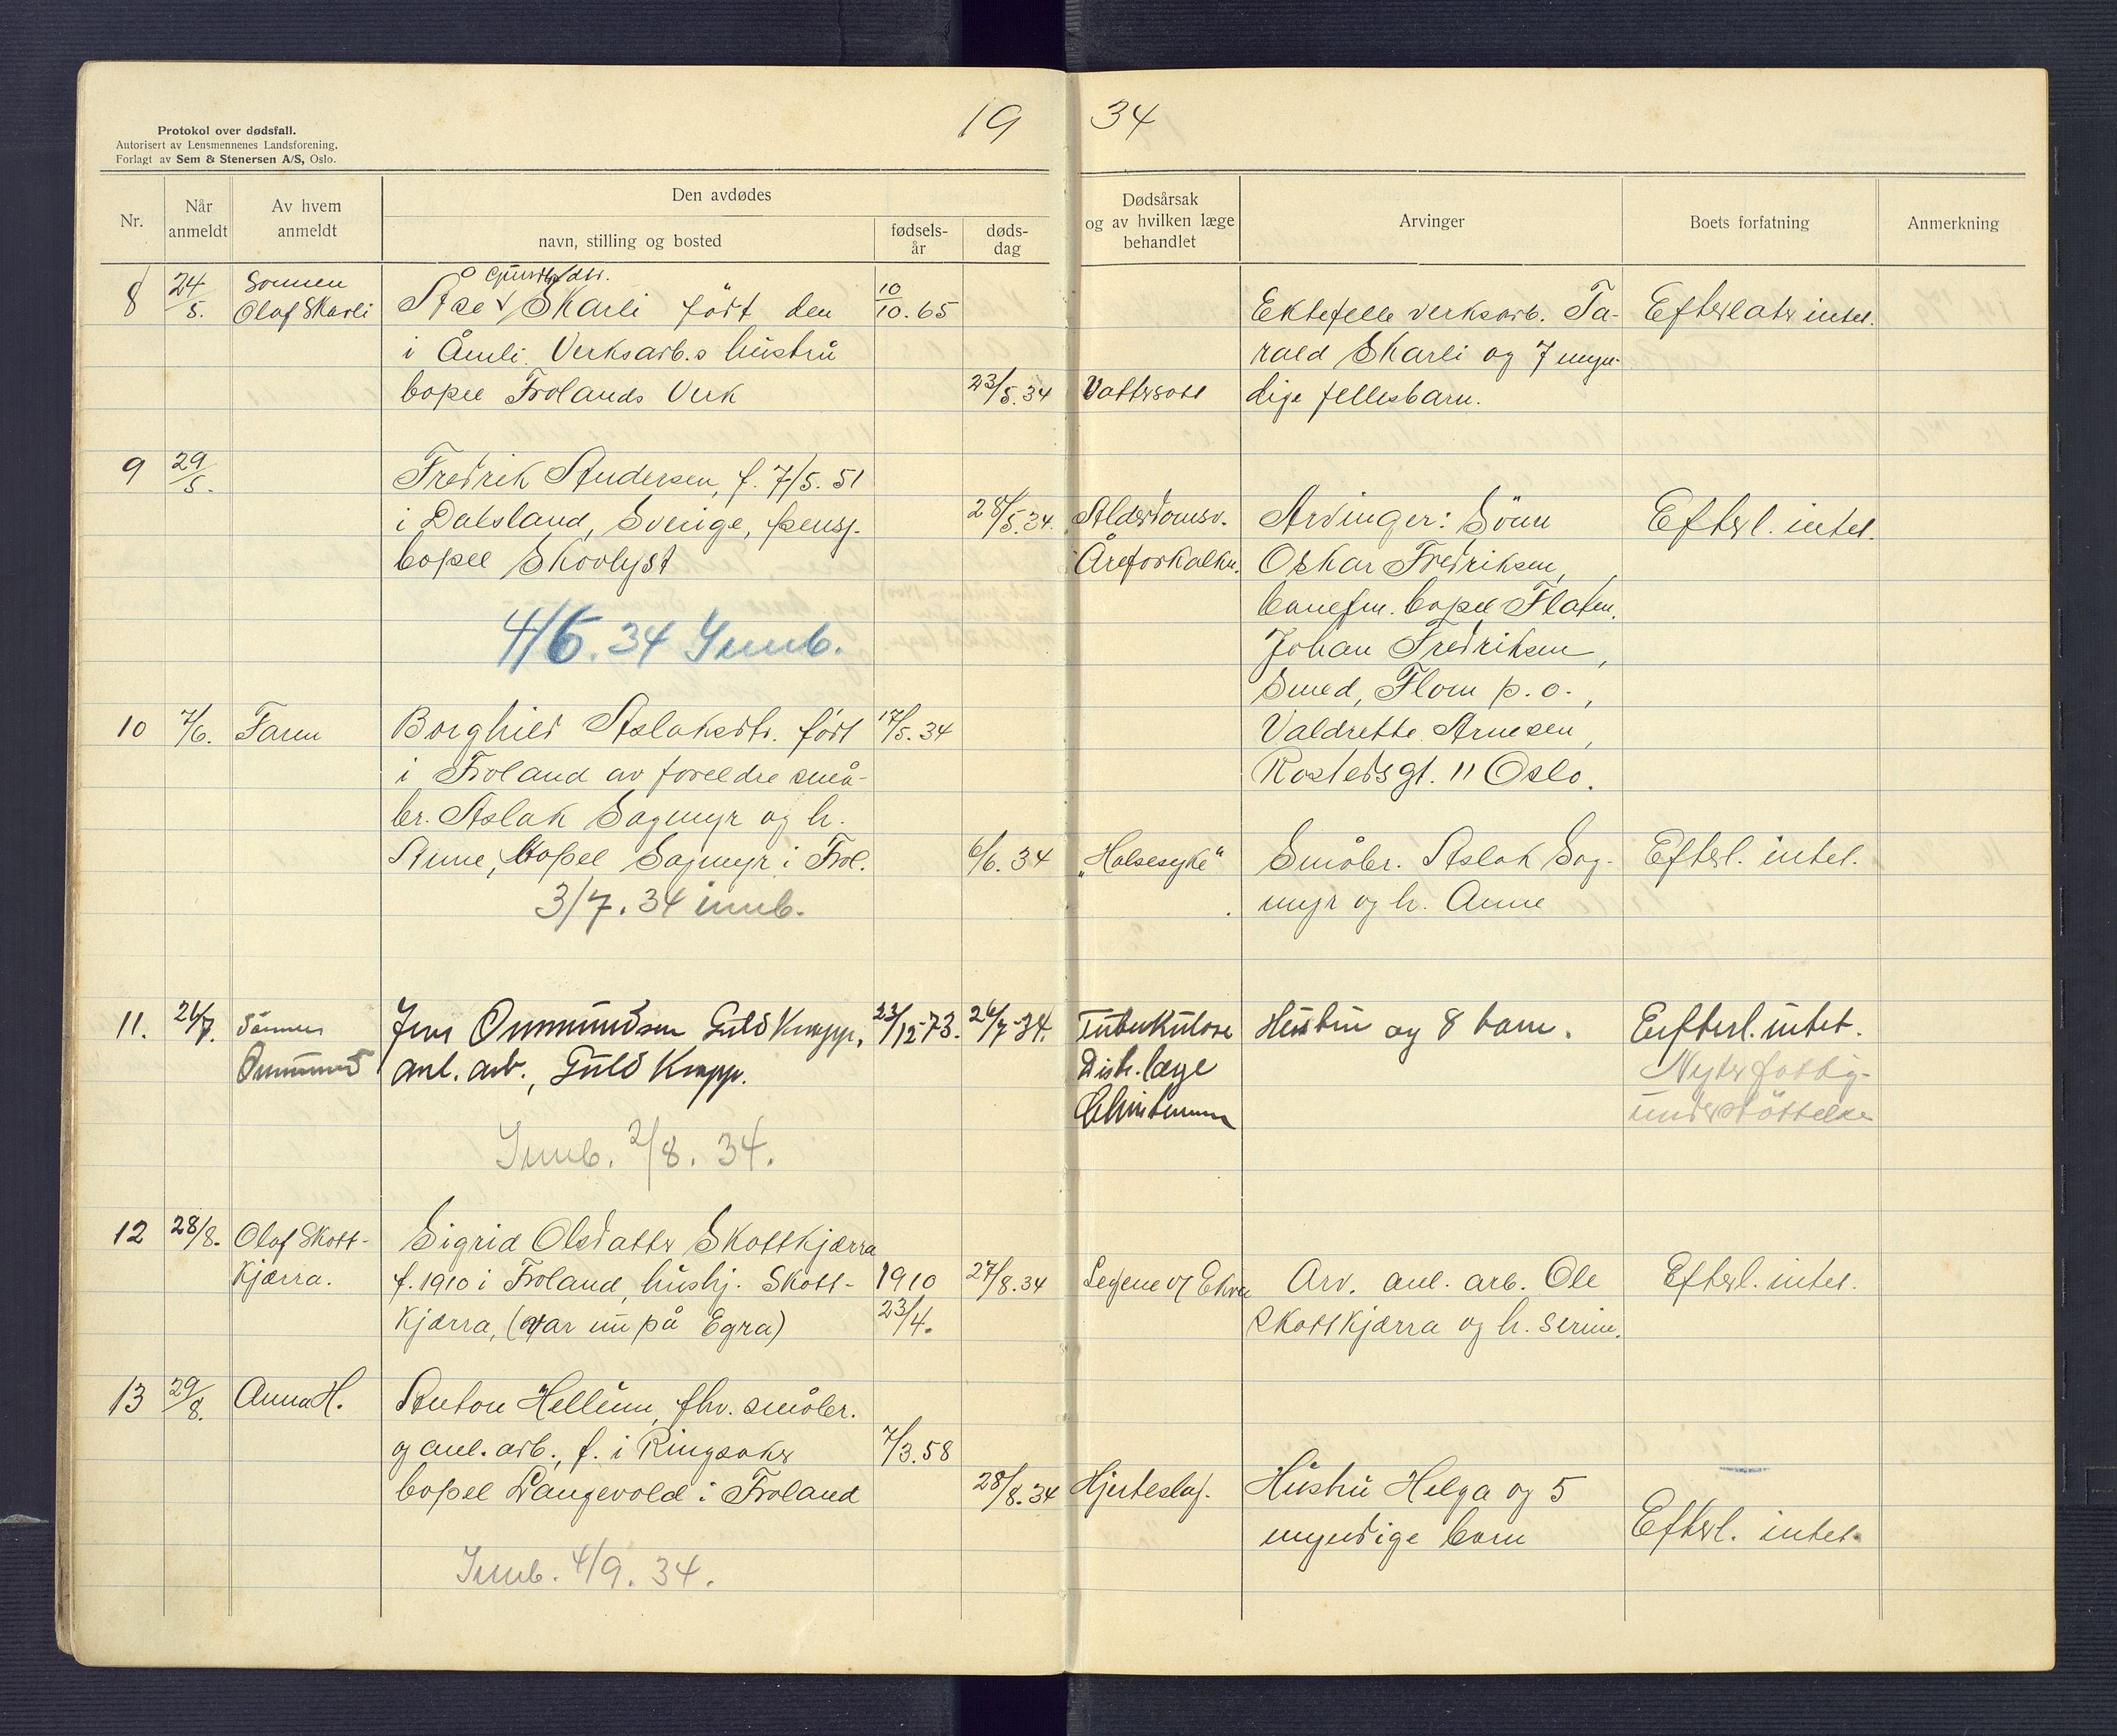 19 34
Protokol over dødsfall.
Autorisert av Lensmennenes Landsforening.
Forlagt av Sem & Stenersen A/S, Oslo.
Nr.
Når anmeldt
Av hvem anmeldt
Den avdødes
navn, stilling og bosted
fødsels-år
døds-dag
Dødsårsak og av hvilken læge behandlet
Arvinger
Boets forfatning
Anmerkning
8
24/5.
Sønnen
Olaf Skarli
Åse Skarli født den
i Åmli Verksarb.s hustru
bopel Frolands Verk
10/10.65
23/5.34
Vattersott
Ektefelle verksarb. Ta-
rald Skarli og 7 myn-
dige fellesbarn.
Efterlater intet.
9
29/5.
Fredrik Andersen, f. 7/5.51
i Dalsland, Sverige, pensj.
bopel Skovlyst
4/6.34 Innb.
28/5.34.
Alderdomsv.
Åreforkalkn.
Arvinger: Sønn
Oskar Fredriksen,
banefm. bopel Flaten.
Johan Fredriksen,
Smed, Flom p.o.,
Valdrette Arnesen,
Rostedsgt. 11 Oslo.
Efterl. intet.
10
7/6.
Faren
Borghild Aslaksdtr. født
i Froland av foreldre små-
br. Aslak Sagmyr og h.
Anne, bopel Sagmyr i Frol.
3/7.34 innb.
17/5.34
6/6.34
„Halsesyke“
Småbr. Aslak Sag-
myr og h. Anne
Efterl. intet.
11.
26/7.
Sønnen
Ommund
Jens Ommundsen Guldknapp,
anl. arb., Guldknapp.
Innb. 2/8.34.
23/12-73.
26/7-34.
Tuberkulose
Distr.læge
Christensen
Hustru og 8 barn.
Efterl. intet.
Nyter fattig-
understøttelse
12
28/8.
Olaf Skott-
kjærra.
Sigrid Olsdatter Skottkjærra
f. 1910 i Froland, hushj. Skott-
kjærra, (var nu på Egra)
1910
23/4.
27/8.34
Arv. anl. arb. Ole
Skottkjærra og h. Serine.
Efterl. intet.
13
29/8.
Anna H.
Anton Hellum, fhv. småbr.
og anl. arb., f. i Ringsaker
bopel Langevold i Froland
Innb. 4/9.34.
7/3.58
28/8.34
Hjerteslag.
Hustru Helga og 5
myndige barn
Efterl. intet.